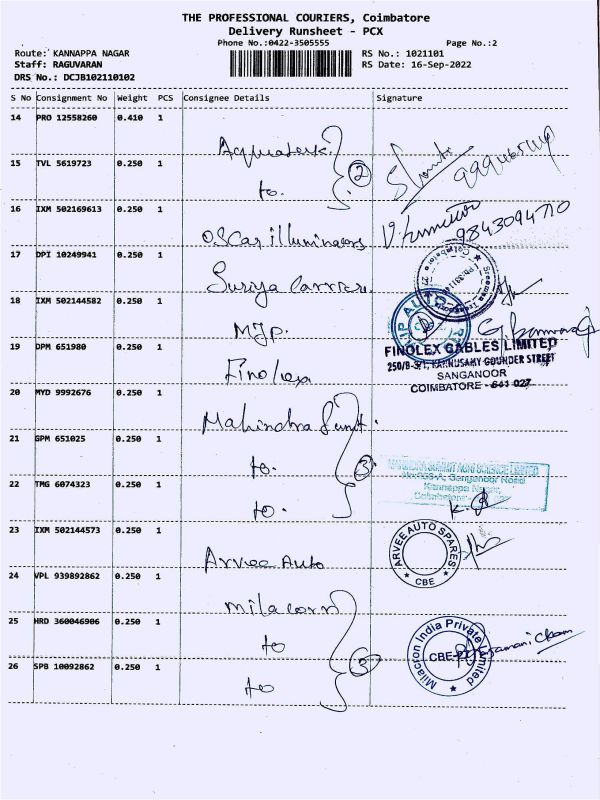 THE PROFESSIONAL COURIERS, Coimbatore
Delivery Runsheet - PCX
Phone No.:0422-3505555
Page No.:2
Route: KANNAPPA NAGAR
RS No.: 1021101
Staff: RAGUVARAN
RS Date: 16-Sep-2022
DRS No.: DCJB102110102
S No Consignment No Weight PCS Consignee Details Signature
14 PRO 12558260 0.410 1
15 TVL 5619723 0.250 1
to. 2
16 IXM 502169613 0.250 1
Oscar illuminations 9843094710
17 DPI 10249941 0.250 1
Suriya Carrier.
18 IXM 502144582 0.250 1
MJP.
19 DPM 651980 0.250 1
Finolex
FINOLEX CABLES LIMITED
250/B-3/1, KANNUSAMY GOUNDER STREET
SANGANOOR
COIMBATORE - 641 027
20 MYD 9992676 0.250 1
Mahindra Sumit.
21 GPM 651025 0.250 1
to. 3
22 TMG 6074323 0.250 1
to.
MAHINDRA SUMMIT AGRI SCIENCE LIMITED
Sanganoor Road
Kannappa Nagar,
Coimbatore
23 IXM 502144573 0.250 1
Arvee Auto
ARVEE AUTO SPARES
CBE
24 VPL 939892862 0.250 1
milacorn
25 HRD 360046906 0.250 1
to 3
26 SPB 10092862 0.250 1
to
Milacron India Private Limited
CBE